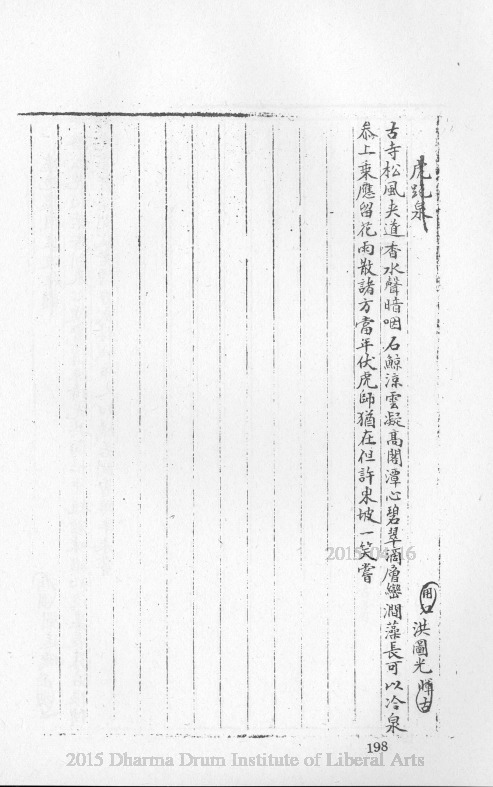 虎跑泉
洪圖光
古寺松風夾道香水聲暗咽石鯨涼雲凝高閣潭心碧翠滴層巒澗藻長可以冷泉
恭上乘應留花雨散諸方當年伏虎師猶在但許東坡一笑嘗
198
2015/04/16
2015 Dharma Drum Institute of Liberal Arts